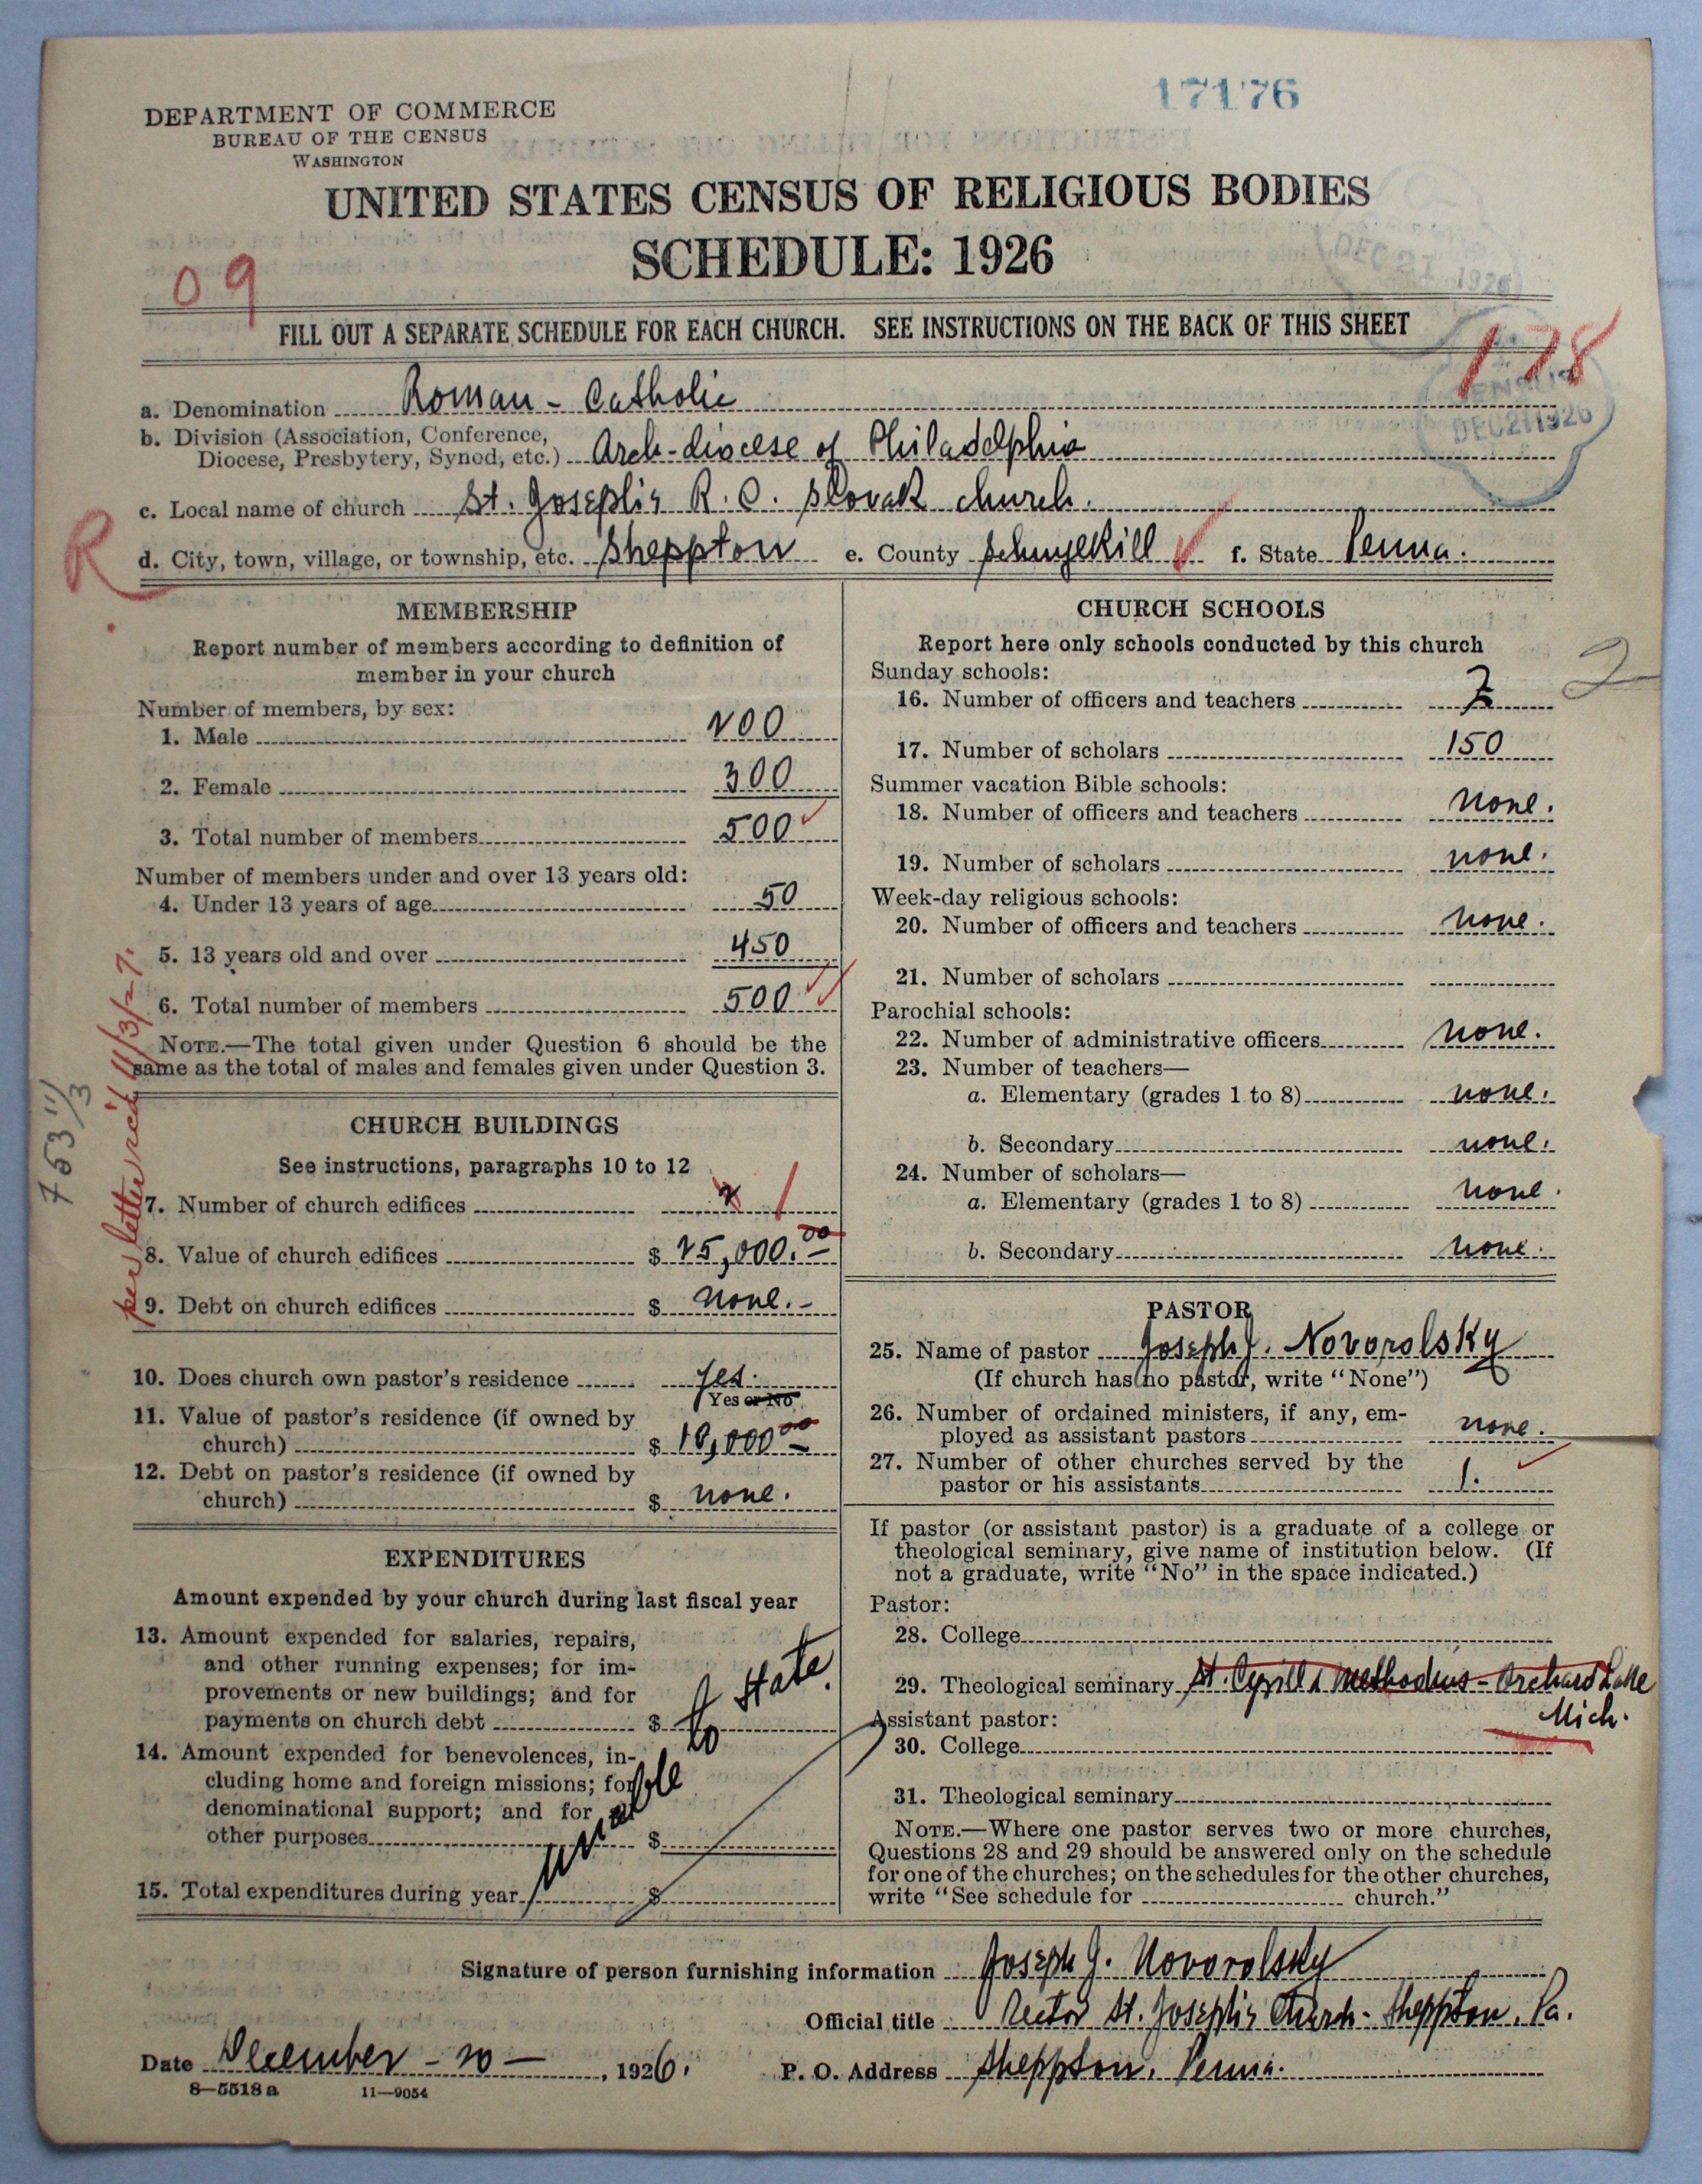 17176
DEPARTMENT OF COMMERCE
BUREAU OF THE CENSUS
WASHINGTON
UNITED STATES CENSUS OF RELIGIOUS BODIES
SCHEDULE: 1926
09
DEC 21 1926
FILL OUT A SEPARATE SCHEDULE FOR EACH CHURCH. SEE INSTRUCTIONS ON THE BACK OF THIS SHEET
178
CENSUS
DEC 21 1926
a. Denomination Roman - Catholic
b. Division (Association, Conference,
Diocese, Presbytery, Synod, etc.) Arch-diocese of Philadelphia
c. Local name of church St. Joseph's R. C. Slovak church.
R
d. City, town, village, or township, etc. Sheppton e. County Schuylkill f. State Penna.
MEMBERSHIP
Report number of members according to definition of
member in your church
Number of members, by sex:
1. Male 200
2. Female 300
3. Total number of members 500
Number of members under and over 13 years old:
4. Under 13 years of age 50
5. 13 years old and over 450
6. Total number of members 500
NOTE.—The total given under Question 6 should be the
same as the total of males and females given under Question 3.
753 11/3
per letter rec'd 11/3/27.
CHURCH BUILDINGS
See instructions, paragraphs 10 to 12
7. Number of church edifices 2 1
8. Value of church edifices $ 25,000.00
9. Debt on church edifices $ none.-
10. Does church own pastor's residence yes.
Yes or No
11. Value of pastor's residence (if owned by
church) $ 10,000 00
12. Debt on pastor's residence (if owned by
church) $ none.
EXPENDITURES
Amount expended by your church during last fiscal year
13. Amount expended for salaries, repairs,
and other running expenses; for im-
provements or new buildings; and for
payments on church debt $
14. Amount expended for benevolences, in-
cluding home and foreign missions; for
denominational support; and for all
other purposes $
15. Total expenditures during year $
unable to state.
CHURCH SCHOOLS
Report here only schools conducted by this church
Sunday schools:
16. Number of officers and teachers 2
2
17. Number of scholars 150
Summer vacation Bible schools:
18. Number of officers and teachers none.
19. Number of scholars none.
Week-day religious schools:
20. Number of officers and teachers none.
21. Number of scholars
Parochial schools:
22. Number of administrative officers none.
23. Number of teachers—
a. Elementary (grades 1 to 8) none.
b. Secondary none.
24. Number of scholars—
a. Elementary (grades 1 to 8) none.
b. Secondary none.
PASTOR
25. Name of pastor Joseph J. Novorolsky
(If church has no pastor, write "None")
26. Number of ordained ministers, if any, em-
ployed as assistant pastors none.
27. Number of other churches served by the
pastor or his assistants 1.
If pastor (or assistant pastor) is a graduate of a college or
theological seminary, give name of institution below. (If
not a graduate, write "No" in the space indicated.)
Pastor:
28. College
29. Theological seminary St. Cyrill & Methodius - Orchard Lake
Mich.
Assistant pastor:
30. College
31. Theological seminary
NOTE.—Where one pastor serves two or more churches,
Questions 28 and 29 should be answered only on the schedule
for one of the churches; on the schedules for the other churches,
write "See schedule for church."
Signature of person furnishing information Joseph J. Novorolsky
Official title Rector St. Joseph's Church - Sheppton, Pa.
Date December - 20 - , 1926. P. O. Address Sheppton, Penna.
8—5518a 11—9054